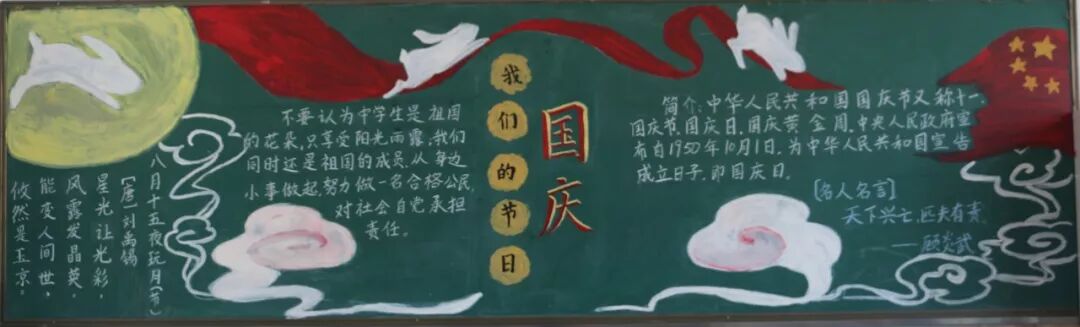 八月十五夜玩月(节)
[唐]刘禹锡
星光让光彩,
风露发晶英。
能变人间世,
攸然是玉京。
不要认为中学生是祖国
的花朵,只享受阳光雨露,我们
同时还是祖国的成员,从身边
小事做起,努力做一名合格公民,
对社会自觉承担
责任。
我们的节日
国庆
简介:中华人民共和国国庆节又称十一、
国庆节、国庆日、国庆黄金周。中央人民政府宣
布自1950年10月1日,为中华人民共和国宣告
成立日子,即国庆日。
[名人名言]
天下兴亡,匹夫有责。
——顾炎武